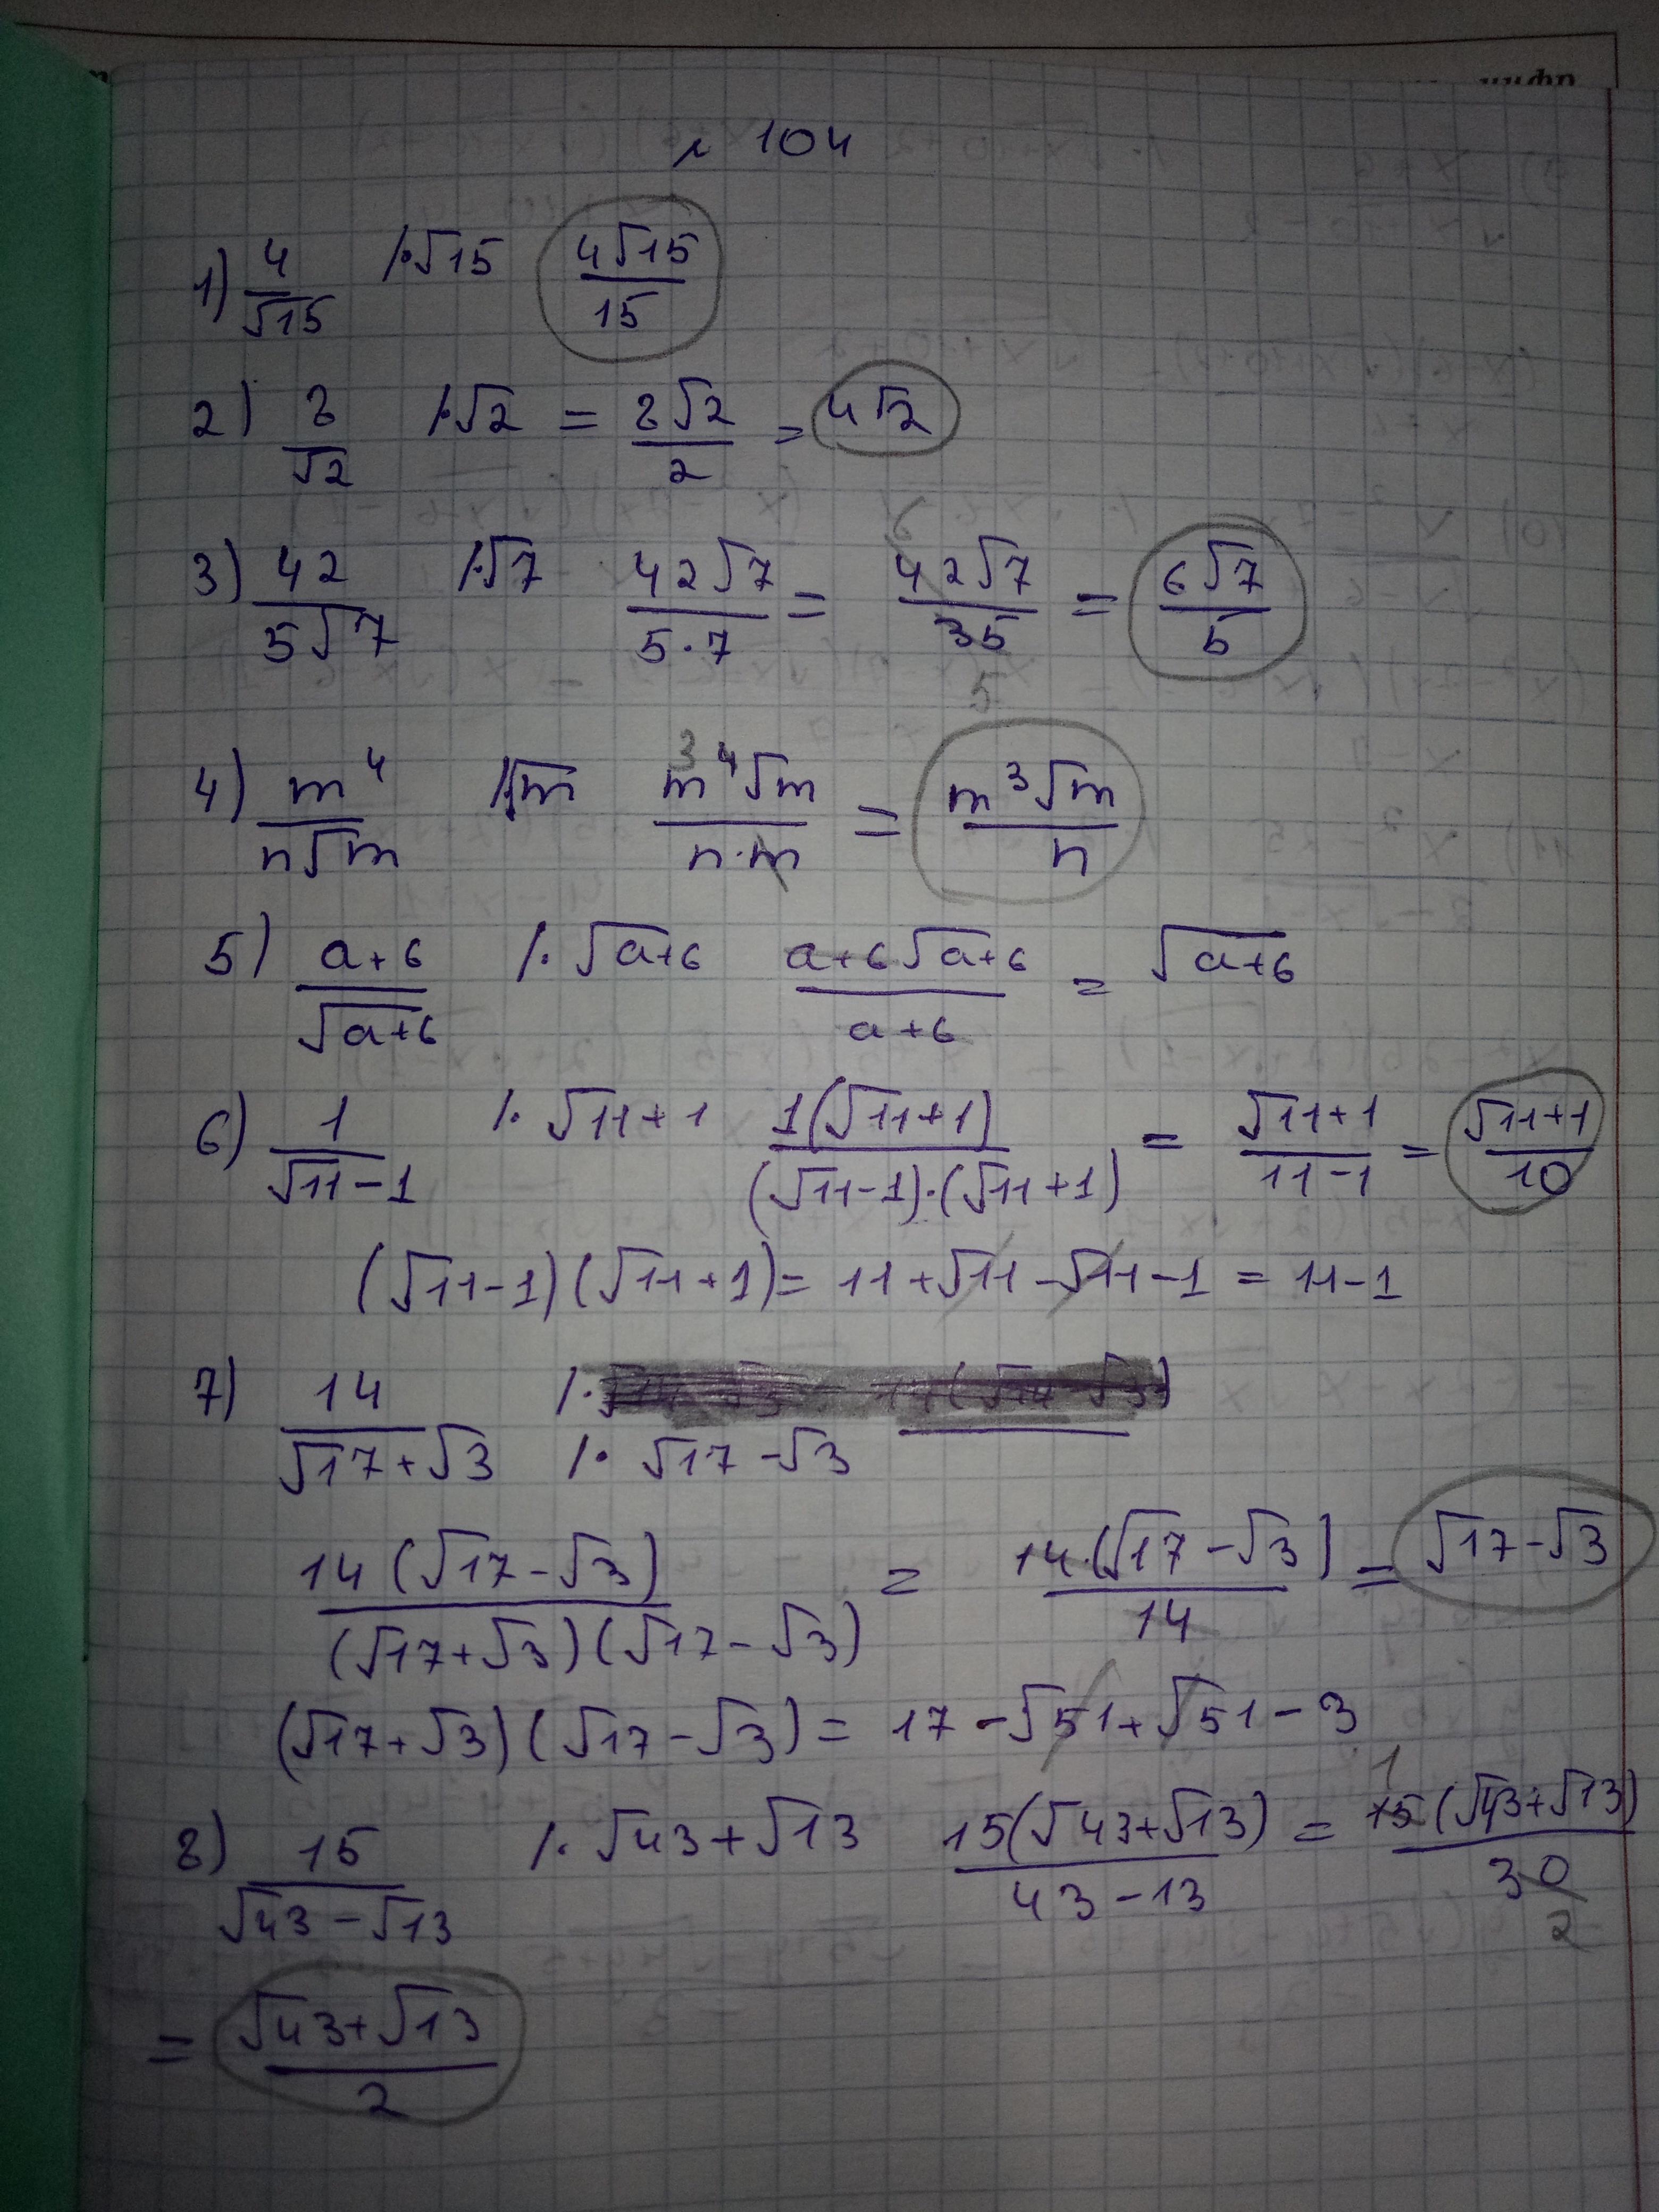 № 104
1) 4/√15 /·√15 4√15/15
2) 8/√2 /·√2 = 8√2/2 = 4√2
3) 42/5√7 /·√7 42√7/5·7 = 42√7/35 = 6√7/5
6
5
4) m⁴/n√m /·√m m⁴√m/n·m = m³√m/n
3
5) a+6/√a+6 /·√a+6 a+6√a+6/a+6 = √a+6
6) 1/√11-1 /·√11+1 1(√11+1)/(√11-1)·(√11+1) = √11+1/11-1 = √11+1/10
(√11-1)(√11+1)= 11+√11-√11-1 = 11-1
7) 14/√17+√3 /·
/· √17-√3
14(√17-√3)/(√17+√3)(√17-√3) = 14·(√17-√3)/14 = √17-√3
(√17+√3)(√17-√3)= 17-√51+√51-3
8) 15/√43-√13 /·√43+√13 15(√43+√13)/43-13 = 15(√43+√13)/30
1
2
= √43+√13/2